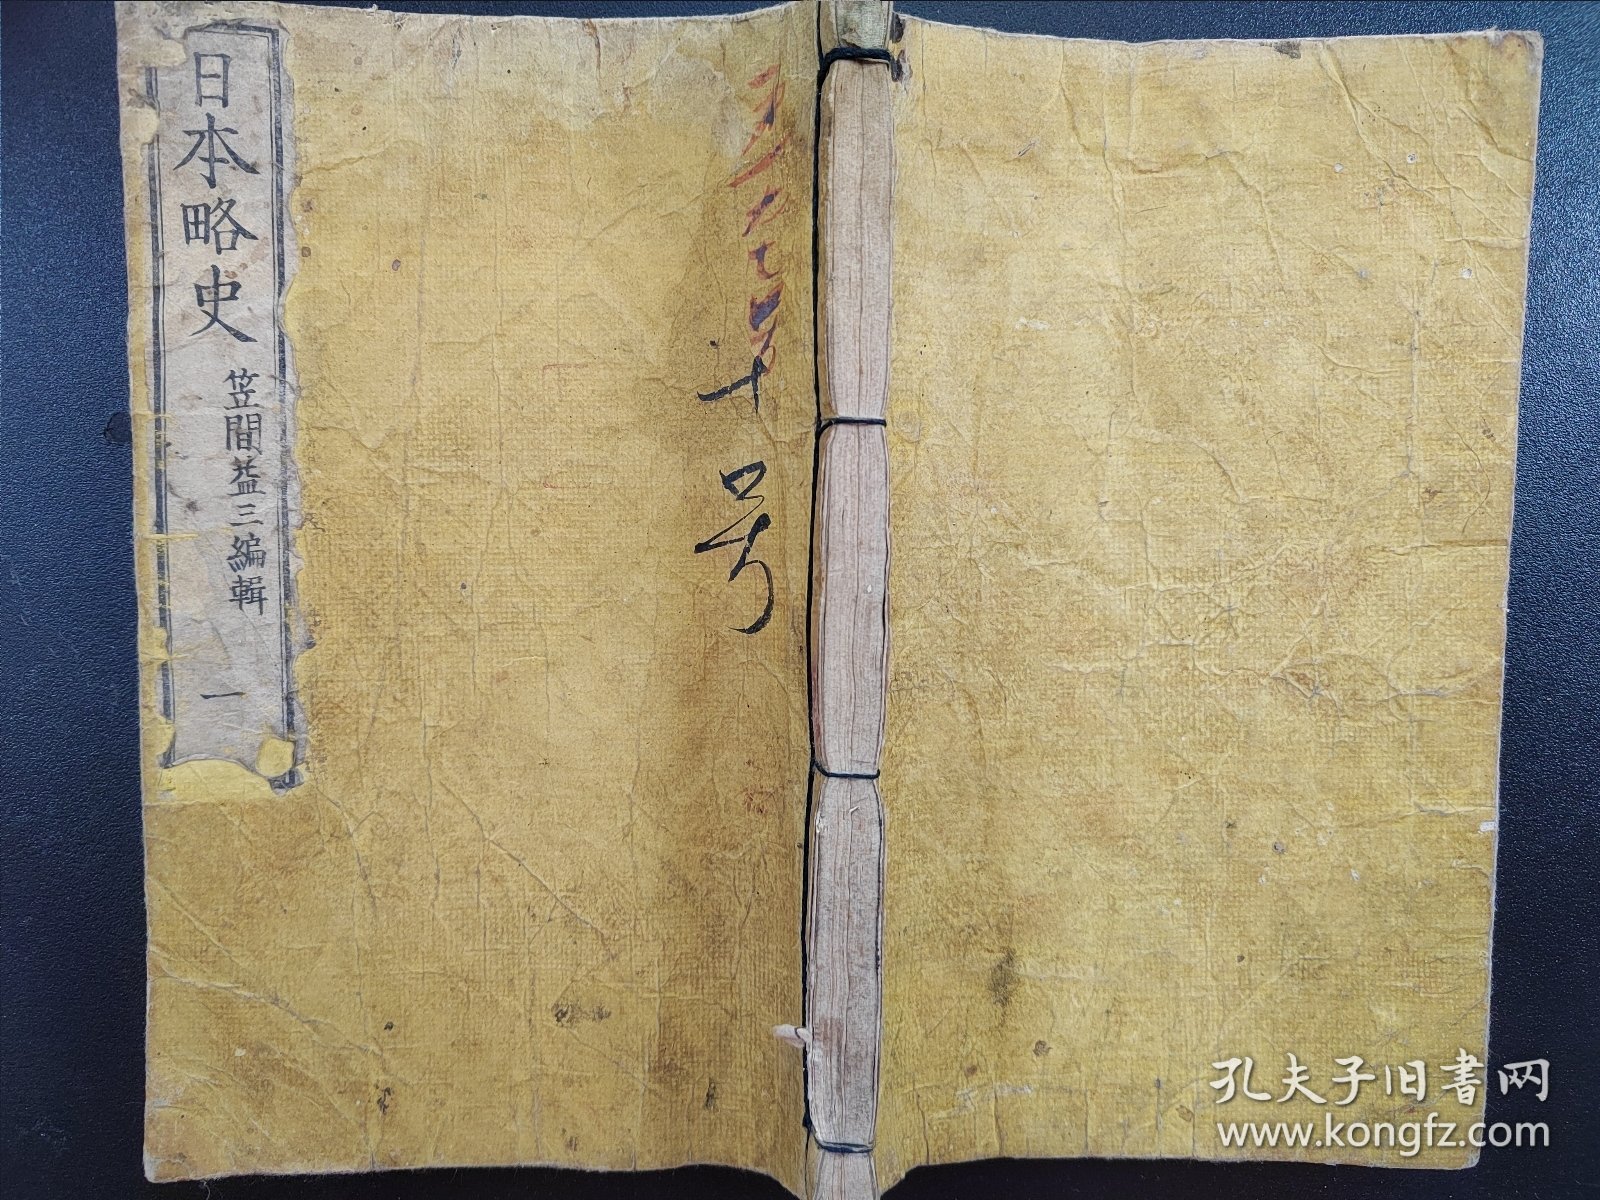 日本略史
笠間益三編輯
一
十号
孔夫子旧書网
www.kongfz.com